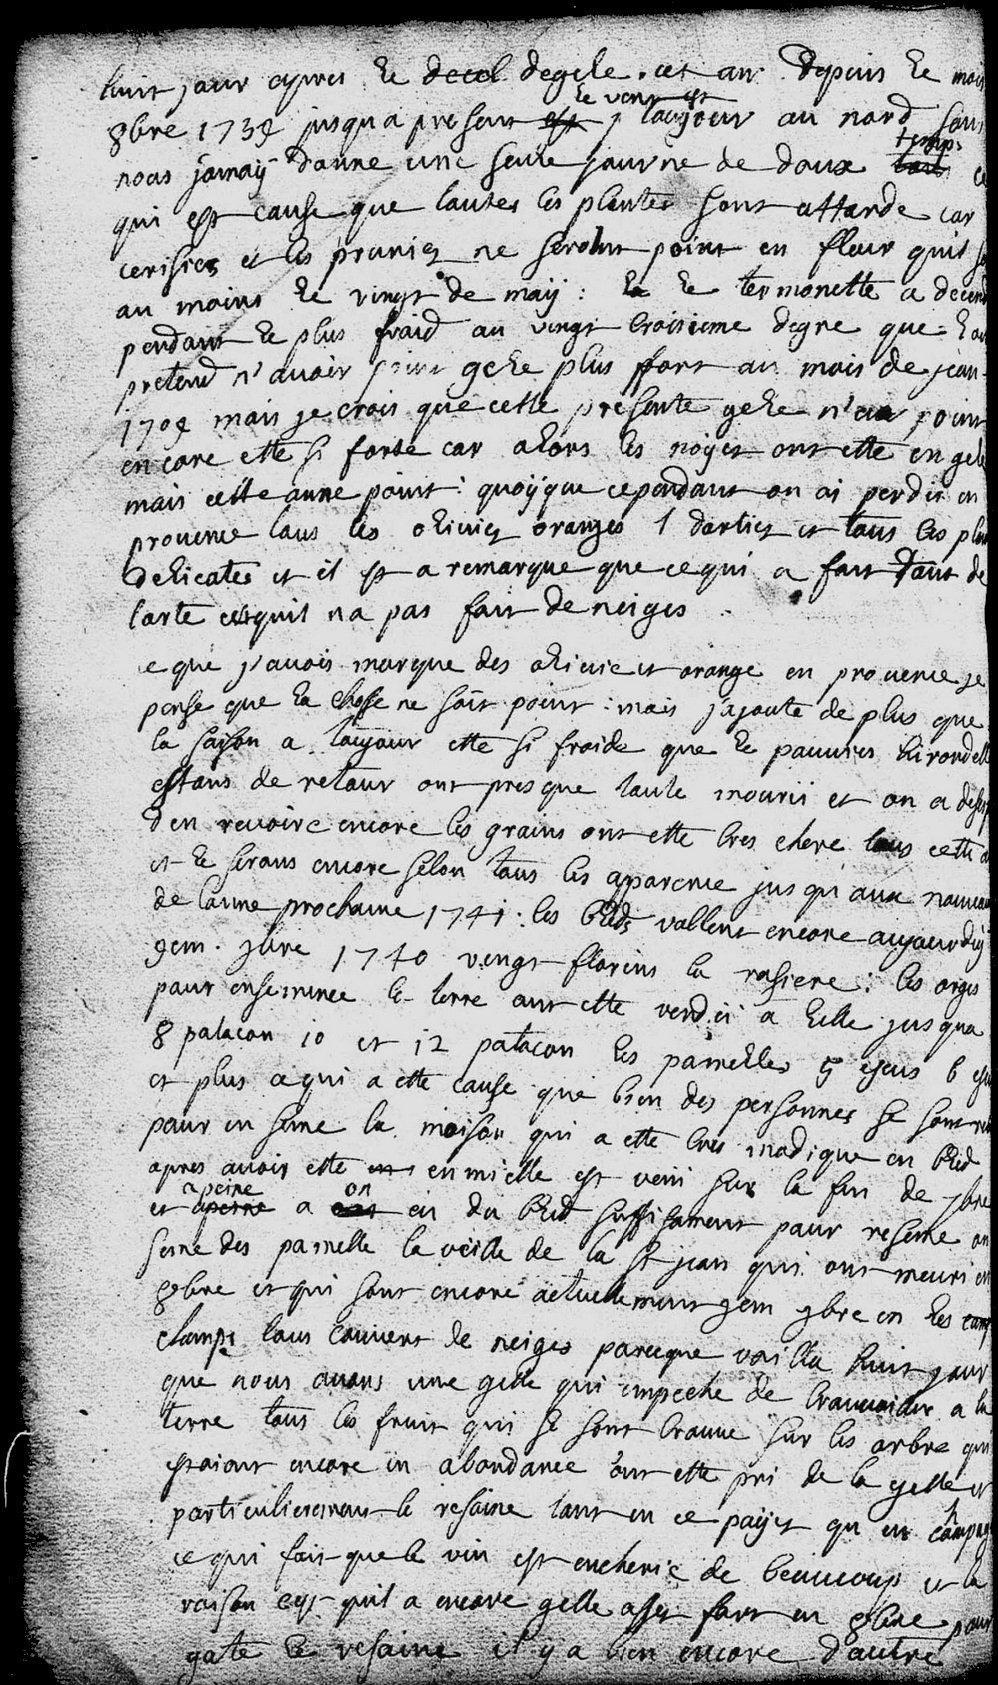 huit jour apres le decel degele. cet an. Depuis le mois
8bre 1739 jusqu a present est le vent est toujour au nord sans
nous jamaiy donne une seule journe de doux temps ce
qui est cause que toutes les plantes sont attarde car
cerisier et les prunies ne seront point en fleur quil
au moins le vingt de maÿ : la le termonette a decend
pendant le plus froid au vingt troisieme degre que l'on
pretend n'avoir point gele plus ffort au mois de jean
1709 mais je crois que cette presente gele n'a point
encore ette si forte car alors les noÿes ont ette en gele
mais cette anne point : quoÿque cependant on ai perdu en
provence tous les olivies oranges 1 darties et tous les plan
delicates et il est a remarque que ce qui a fait tant de
tarte cest quil na pas fait de neiges
e que j'avois marque des olivie et orange en provence je
pense que la chosse ne soit point : mais j'ajoute de plus que
la saison a toujour ette si froide que le pauvres hirondell
estans de retour ont presque toute mouri et on a
den revoire encore les grains ont ette tres chere tous cette
et le serons encore selon tous les apparence jusqu aux nouveau
de l'anne prochaine 1741 : les bleds vallent encore aujourdÿ
9em. 9bre 1740 vingt florins la rasiere : les orges
pour ensemencé le terre ont ette verdu a lille jusqua
8 patacon 10 et 12 patacon les pamelles 5 eseus 6
et plus a qui a ette cause que bien des personnes se sont
pour en seme la moison qui a ette tres modique en bled
apres avoir ette en mielle est veni sur la fin de 7bre
et a peine a on eu du bled suffisament pour reseme on
seme des pamelle la veille de la st jean qui ont meuri en
8bre et qui sont encore actuellement 9em 9bre en les
champs tous couvert de neiges parceque voilla huit jour
que nous avons une gelle qui empeche de travailler a la
terre tous les fruit qui se sont trouve sur les arbre qui
estoient encore in abondance ont ette pri de la gelle et
particulierement le resaine tant en ce paÿs qu en campag
ce qui fait que le vin est encherie de beaucoup et la
raison est quil a encore gelle asses fort en 8bre pour
gate le resaine il y a bien encore d'autre